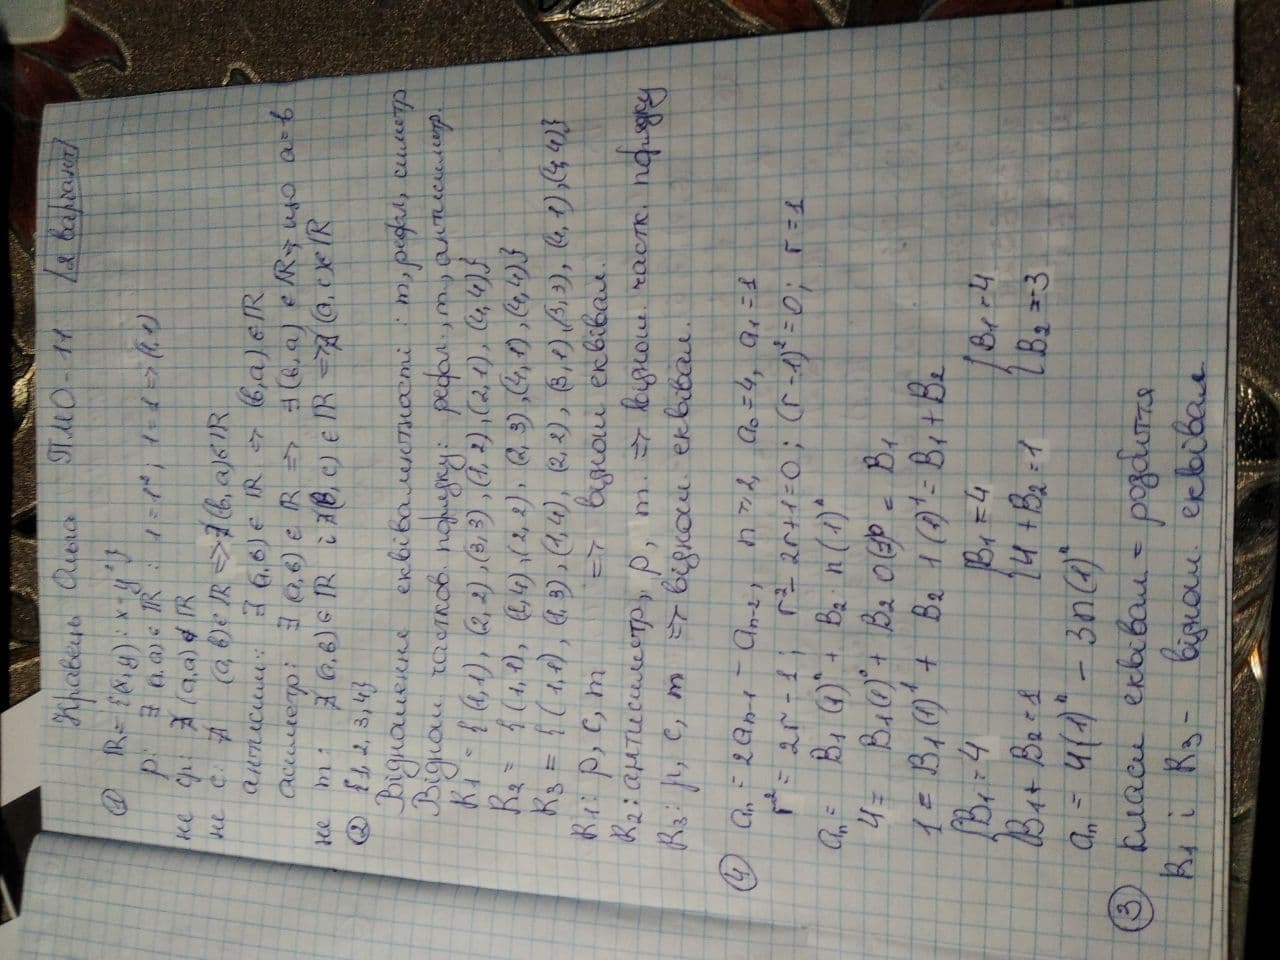 Кравець Ольга ПМО-11 [2 варіант]
① R = {(x,y) : x=y²}
р: ∃ (a,a) ∈ R : 1=1²; 1=1 => (1,1)
не ір: ∄ (a,a) ∉ R
не с: ∄ (a,в) ∈ R => ∄ (в,a) ∈ R
антисим: ∃ (a,в) ∈ R => (в,a) ∈ R
асиметр: ∃ (a,в) ∈ R => ∃ (в,a) ∈ R, що a=b
не т: ∄ (a,в) ∈ R і ∄ (B,c) ∈ R => ∄ (a,c) ∈ R
② {1,2,3,4}
Відношення еквівалентності : т, рефл, симетр
Віднош. частков. порядку: рефл., т, антисиметр.
R1 = {(1,1), (2,2), (3,3), (1,2), (2,1), (4,4)}
R2 = {(1,1), (1,4), (2,2), (2,3), (4,1), (4,4)}
R3 = {(1,1), (1,3), (1,4), (2,2), (3,1), (3,3), (4,1), (4,4)}
R1: р, с, т => віднош еквівал.
R2: антисиметр, р, т. => віднош. частк. порядку
R3: р, с, т => віднош. еквівал.
④ aₙ = 2aₙ₋₁ - aₙ₋₂, n ≥ 2, a₀ = 4, a₁ = 1
r² = 2r - 1; r² - 2r + 1 = 0; (r-1)² = 0; r = 1
aₙ = B₁(1)ⁿ + B₂ · n(1)ⁿ
4 = B₁(1)⁰ + B₂ 0(1)⁰ = B₁
1 = B₁(1)¹ + B₂ 1(1)¹ = B₁ + B₂
{B₁ = 4 {B₁ = 4 {B₁ = 4
{B₁ + B₂ = 1 {4 + B₂ = 1 {B₂ = -3
aₙ = 4(1)ⁿ - 3n(1)ⁿ
③ Класи еквівал = розбиття
R1 і R3 - віднош. еквівал